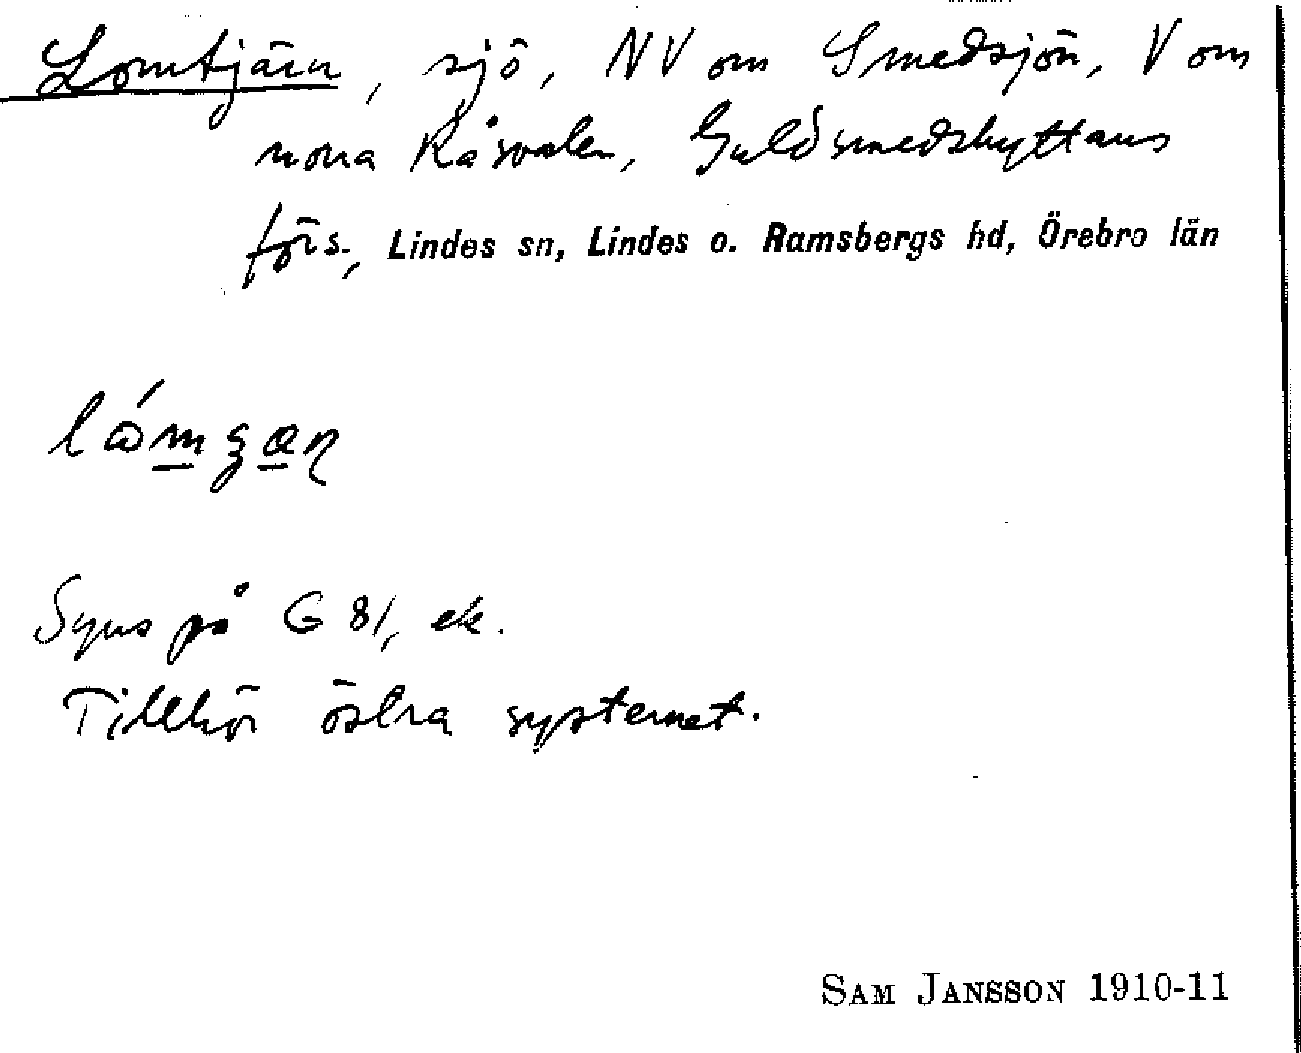 Lomtjärn, sjö, NV om Smedsjön, V om
norra Råsvalen, Guldsmedshyttans
förs., Lindes sn, Lindes o. Ramsbergs hd, Örebro län
Syns på G 81, ek.
Tillhör östra systemet.
SAM JANSSON 1910-11